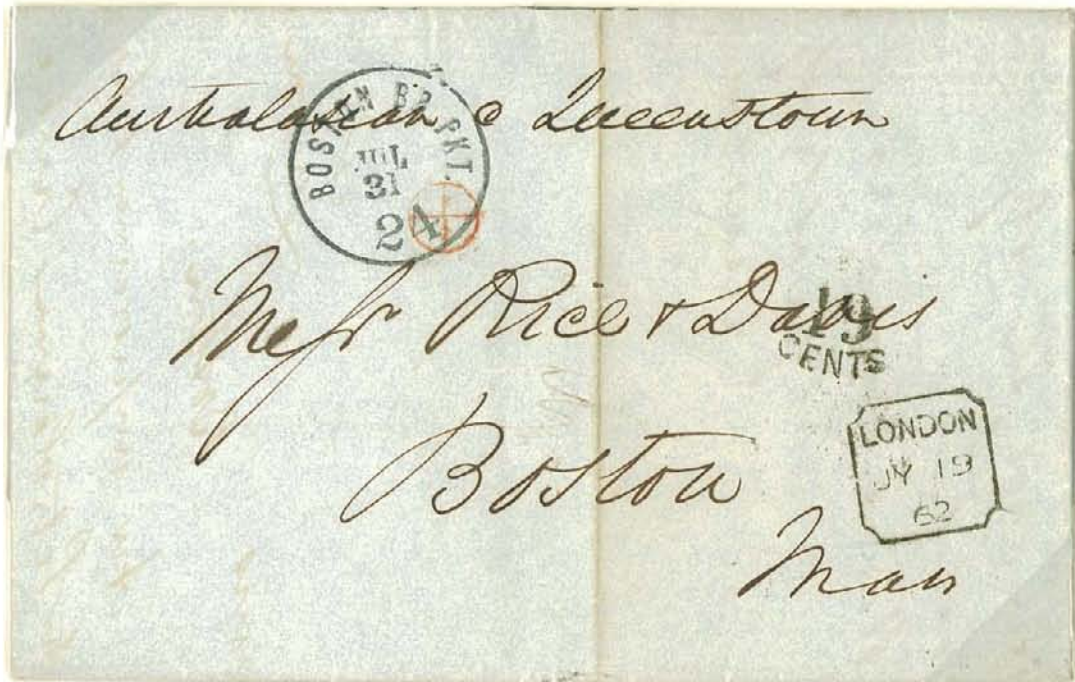 Australasian @ Queenstown
BOSTON BR. PKT.
JUL
31
24
Messr Rice & Davis
19
CENTS
Boston
LONDON
JY 19
62
Mass